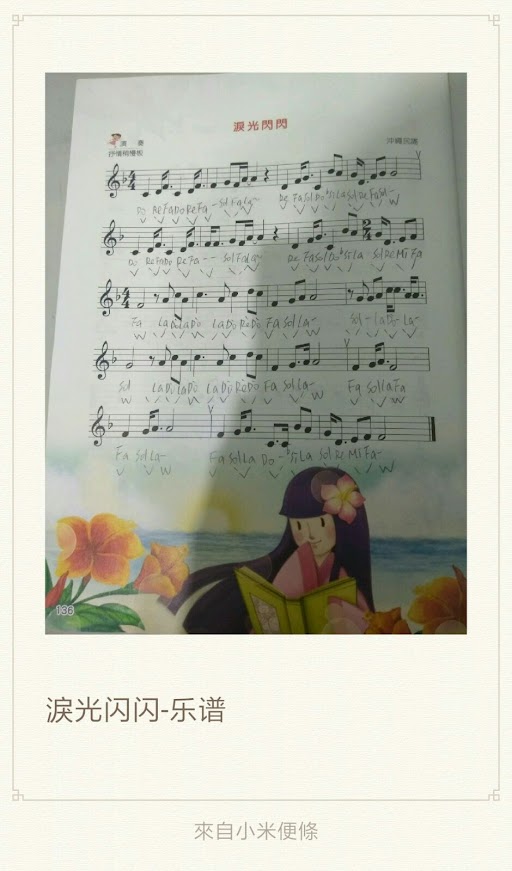 淚光閃閃
演 奏
抒情稍慢板
沖繩民謠
4
4
Do ReFaDoReFa - SolFaLa-
Re FaSolDo bSiLaSolReFaSol-
Do ReFaDo ReFa - - SolFaLa
Re FaSolDo bSiLa SolReMiFa
2
4
4
4
Fa LaDoLaDo LaDoReDo FaSolLa-
Sol
Sol LaDoLaDo LaDoReDo Fa SolLa-
Fa SolLaFa
FaSolLa-
FaSolLa Do - bSiLa SolReMiFa-
136
淚光闪闪-乐谱
來自小米便條